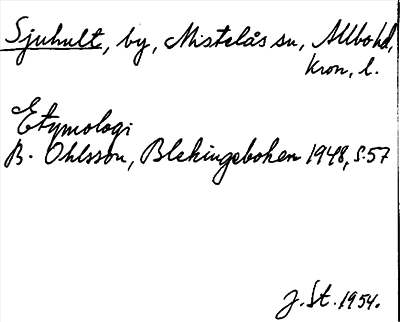 Sjuhult, by, Mistelås sn, Allbo hd,
Kron. l.
Etymologi
B. Ohlsson, Blekingeboken 1948, s. 57
J. St. 1954.